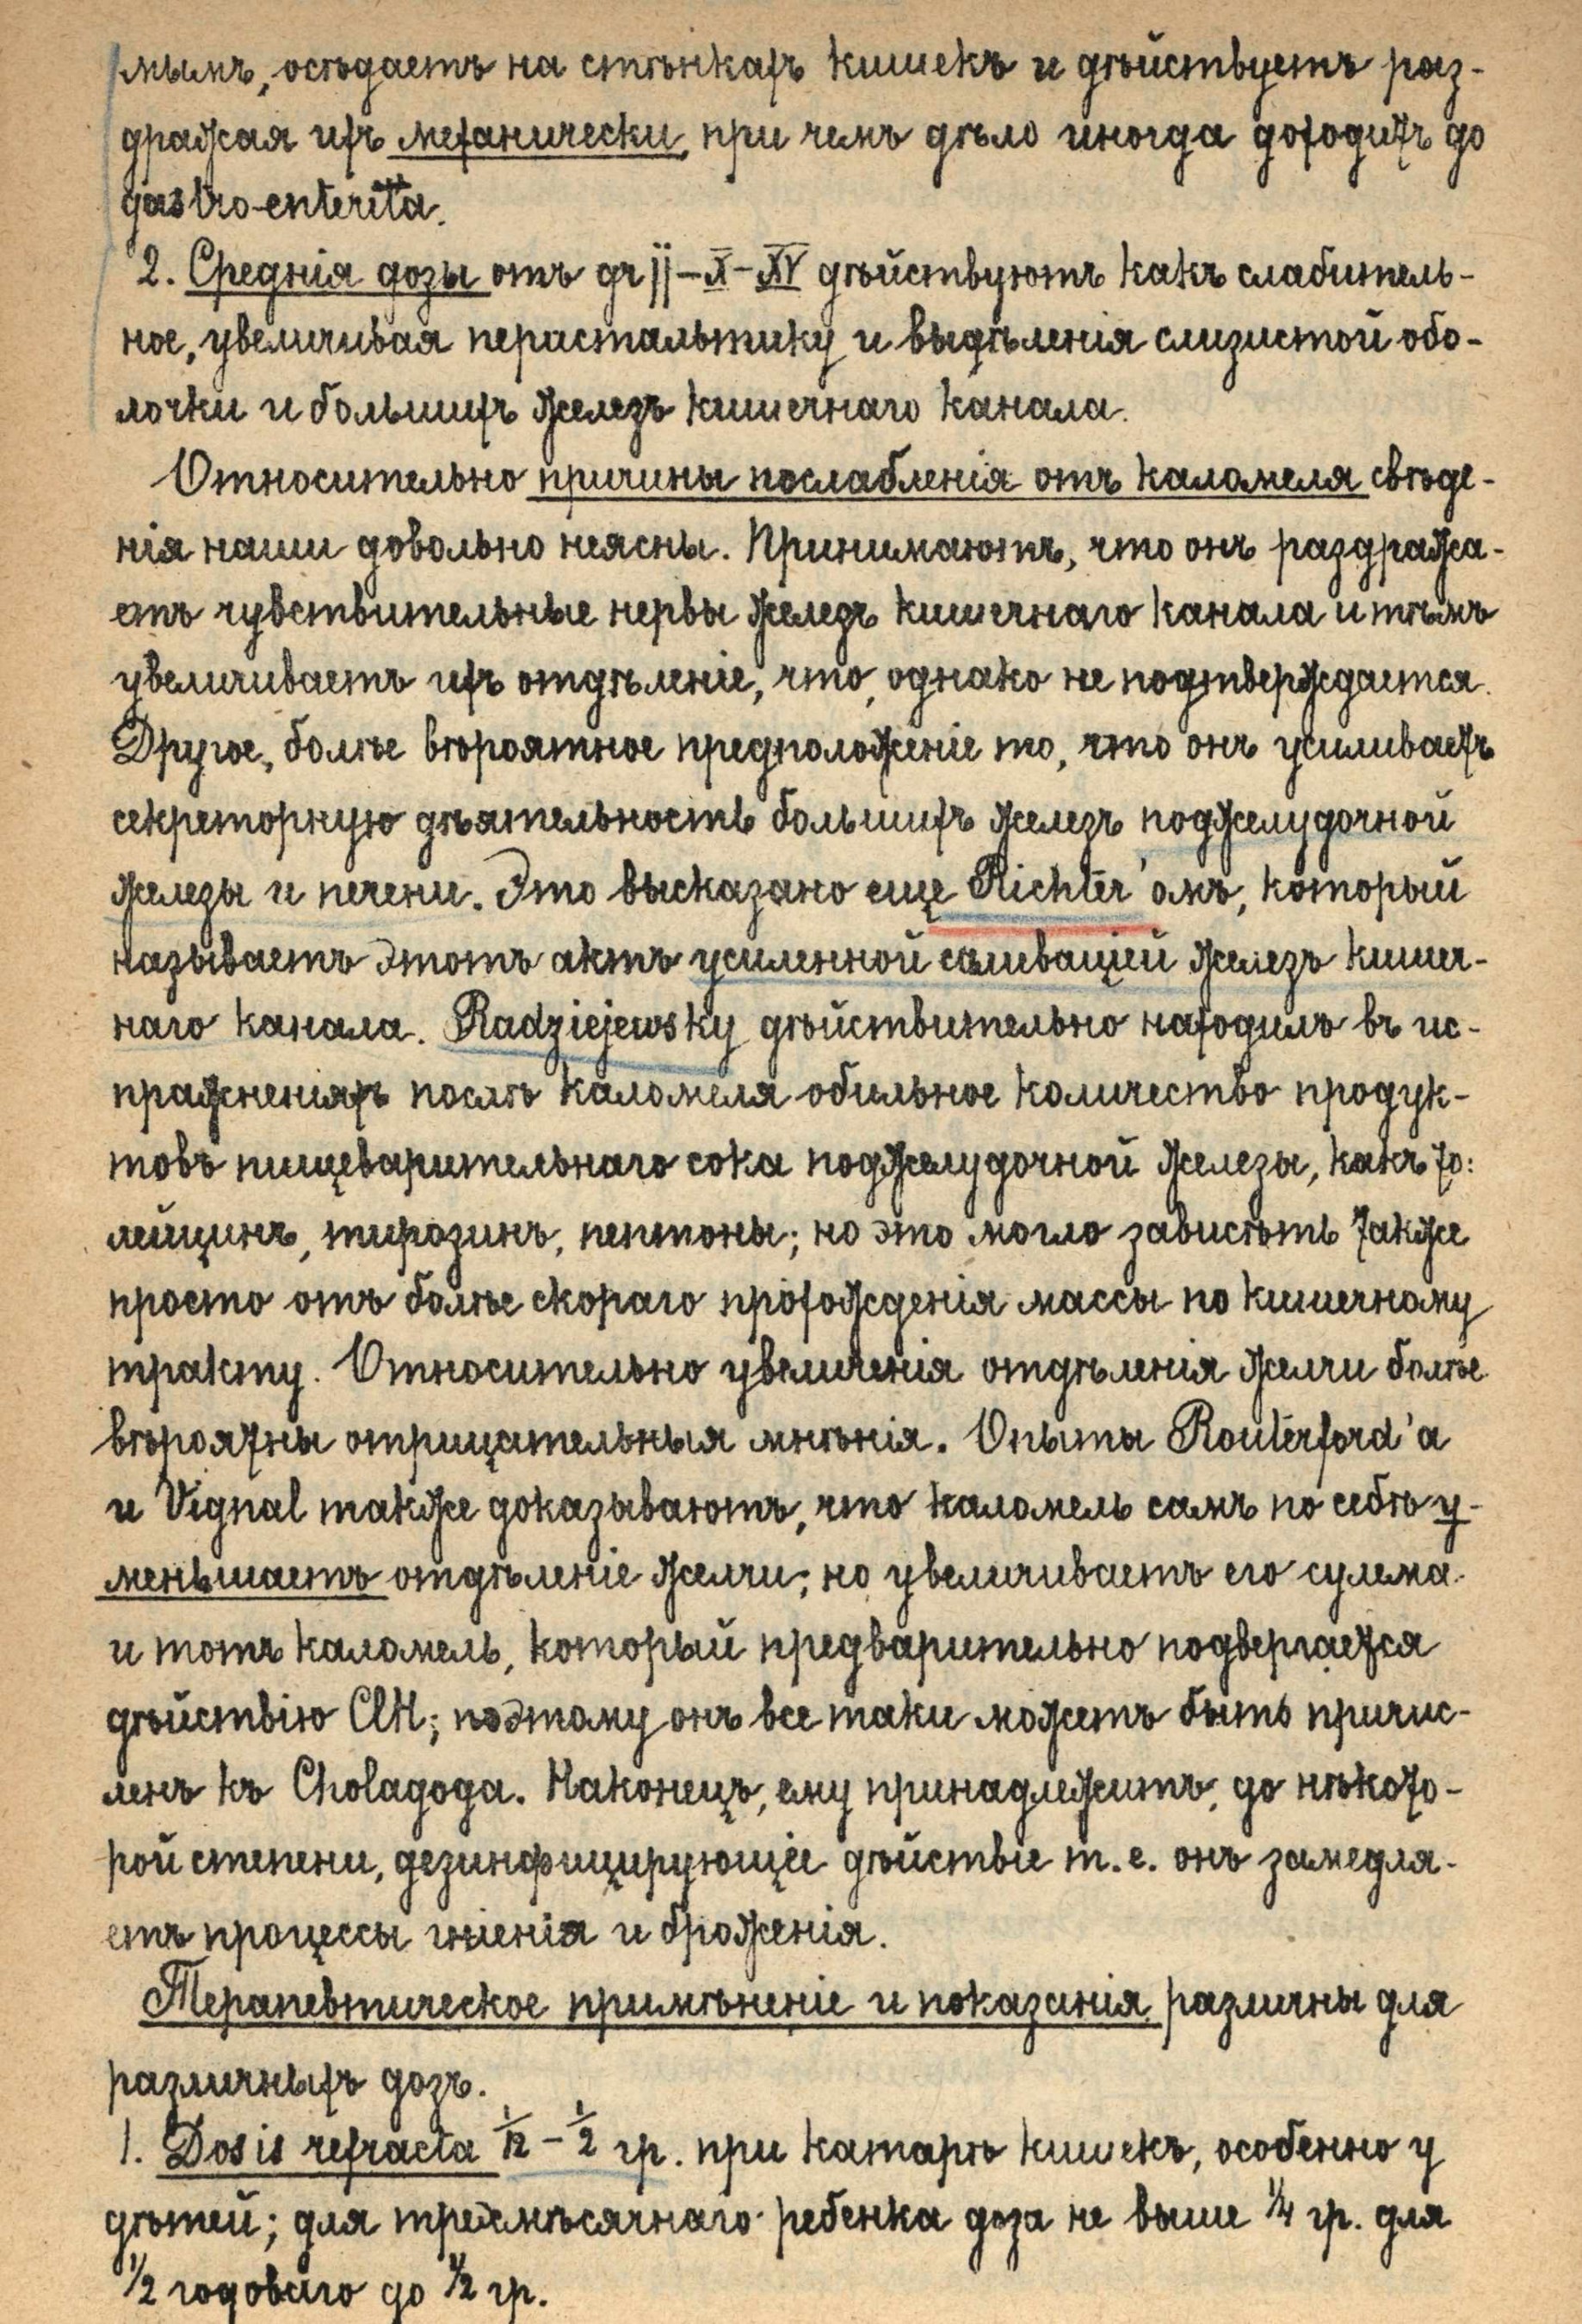 мымъ, осѣдаетъ на стѣнкахъ кишекъ и дѣйствуетъ раз-
дражая ихъ механически, при чемъ дѣло иногда доходитъ до
gastro-enterita.
2. Среднія дозы отъ gr ĪĪ–X–XV дѣйствуютъ какъ слабитель-
ное, увеличивая перистальтику и выдѣленія слизистой обо-
лочки и большихъ железъ кишечнаго канала.
Относительно причины послабленія отъ каломеля свѣде-
нія наши довольно неясны. Принимаютъ, что онъ раздража-
етъ чувствительные нервы железъ кишечнаго канала и тѣмъ
увеличиваетъ ихъ отдѣленіе, что, однако не подтверждается.
Другое, болѣе вѣроятное предположеніе то, что онъ усиливаетъ
секреторную дѣятельность большихъ железъ поджелудочной
железы и печени. Это высказано еще Richter'омъ, который
называетъ этотъ актъ усиленной саливаціей железъ кишеч-
наго канала. Radziejewsky дѣйствительно находилъ въ ис-
пражненіяхъ послѣ каломеля обильное количество продук-
товъ пищеварительнаго сока поджелудочной железы, какъ то:
лейцинъ, тирозинъ, пептоны; но это могло зависѣть также
просто отъ болѣе скораго прохожденія массы по кишечному
тракту. Относительно увеличенія отдѣленія желчи болѣе
вѣроятны отрицательныя мнѣнія. Опыты Routerford'а
и Vignal также доказываютъ, что каломель самъ по себѣ у-
меньшаетъ отдѣленіе желчи; но увеличиваетъ его сулема
и тотъ каломель, который предварительно подвергается
дѣйствію ClH; поэтому онъ все таки можетъ быть причис-
ленъ къ Cholagoga. Наконецъ, ему принадлежитъ, до нѣкото-
рой степени, дезинфицирующее дѣйствіе т. е. онъ замедля-
етъ процессы гніенія и броженія.
Терапевтическое примѣненіе и показанія различны для
различныхъ дозъ.
1. Dosis refracta 1/12 – 1/2 гр. при катарѣ кишекъ, особенно у
дѣтей; для трехмѣсячнаго ребенка доза не выше 1/4 гр. для
1/2 годоваго до 1/2 гр.